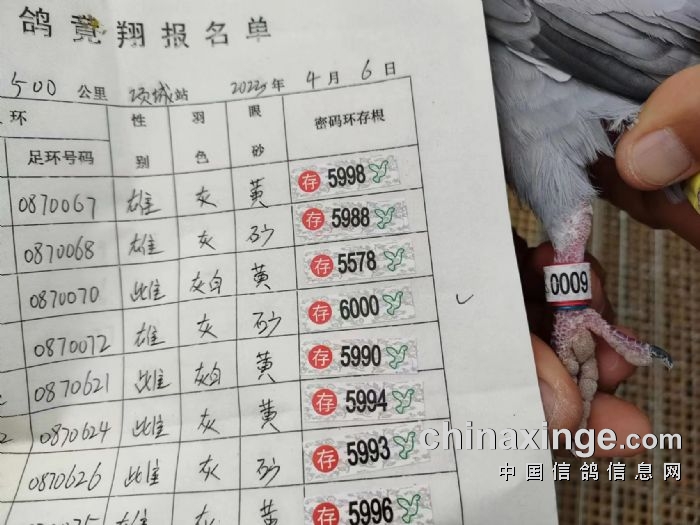 鸽竞翔报名单
500 公里 项城站 2022年 4月 6日
环 性别 羽色 眼砂 密码环存根
足环号码
0870067 雄 灰 黄 存 5998
0870068 雄 灰 砂 存 5988
0870070 雌 灰白 黄 存 5578
0870072 雄 灰 砂 存 6000
0870621 雌 灰白 黄 存 5990
0870624 雌 灰 黄 存 5994
0870626 雌 灰 砂 存 5993
雄 灰 黄 存 5996
0009
chinaxinge.com
中国信鸽信息网